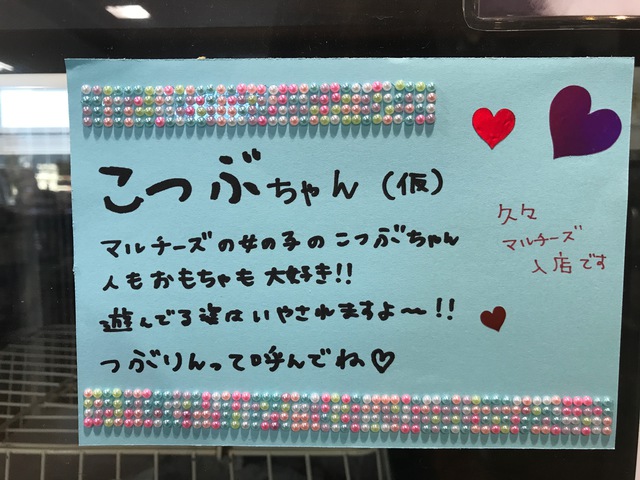 こつぶちゃん(仮)
マルチーズの女の子のこつぶちゃん
人もおもちゃも大好き!!
遊んでる姿はいやされますよ〜!!
つぶりんって呼んでね♡
久々
マルチーズ
入店です